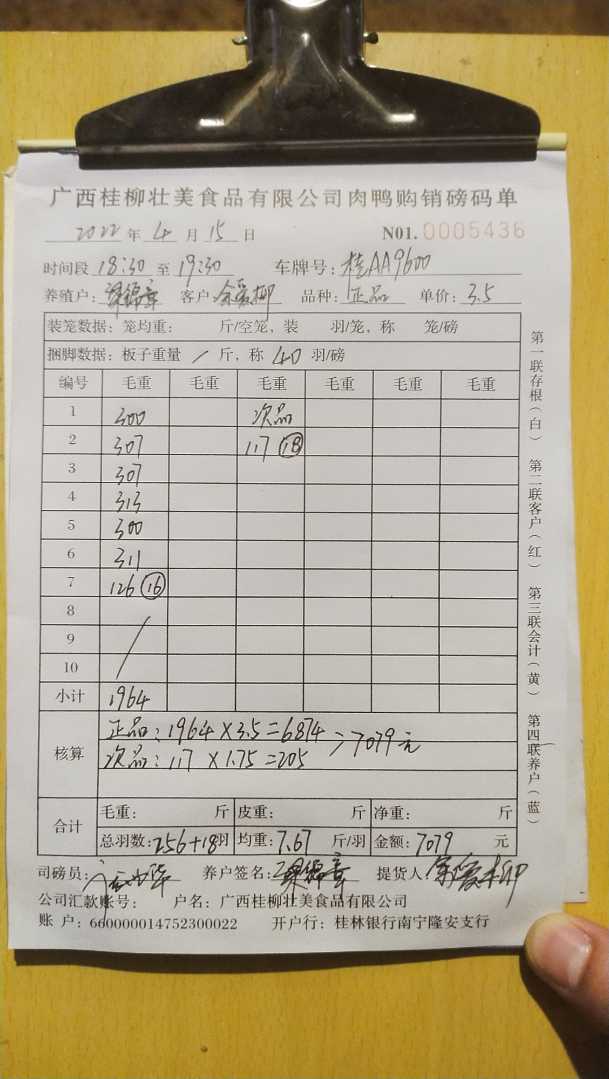 广西桂柳壮美食品有限公司肉鸭购销磅码单
2022 年 4 月 15 日 N01. 0005436
时间段 18:30 至 19:30 车牌号: 桂AA9600
养殖户: 梁锦章 客户: 余爱柳 品种: 正品 单价: 3.5
装笼数据: 笼均重: 斤/空笼, 装 羽/笼, 称 笼/磅
捆脚数据: 板子重量 / 斤, 称 40 羽/磅
编号 毛重 毛重 毛重 毛重 毛重 毛重
1 300 次品
2 307 117 18
3 307
4 313
5 300
6 311
7 126 16
8
9 /
10
小计 1964
核算 正品: 1964 × 3.5 = 6874
次品: 117 × 1.75 = 205 > 7079元
合计 毛重: 斤 皮重: 斤 净重: 斤
总羽数: 256+18羽 均重: 7.67 斤/羽 金额: 7079 元
司磅员: 养户签名: 梁锦章 提货人: 余爱柳
公司汇款账号: 户名: 广西桂柳壮美食品有限公司
账 户: 660000014752300022 开户行: 桂林银行南宁隆安支行
第一联存根(白) 第二联客户(红) 第三联会计(黄) 第四联养户(蓝)